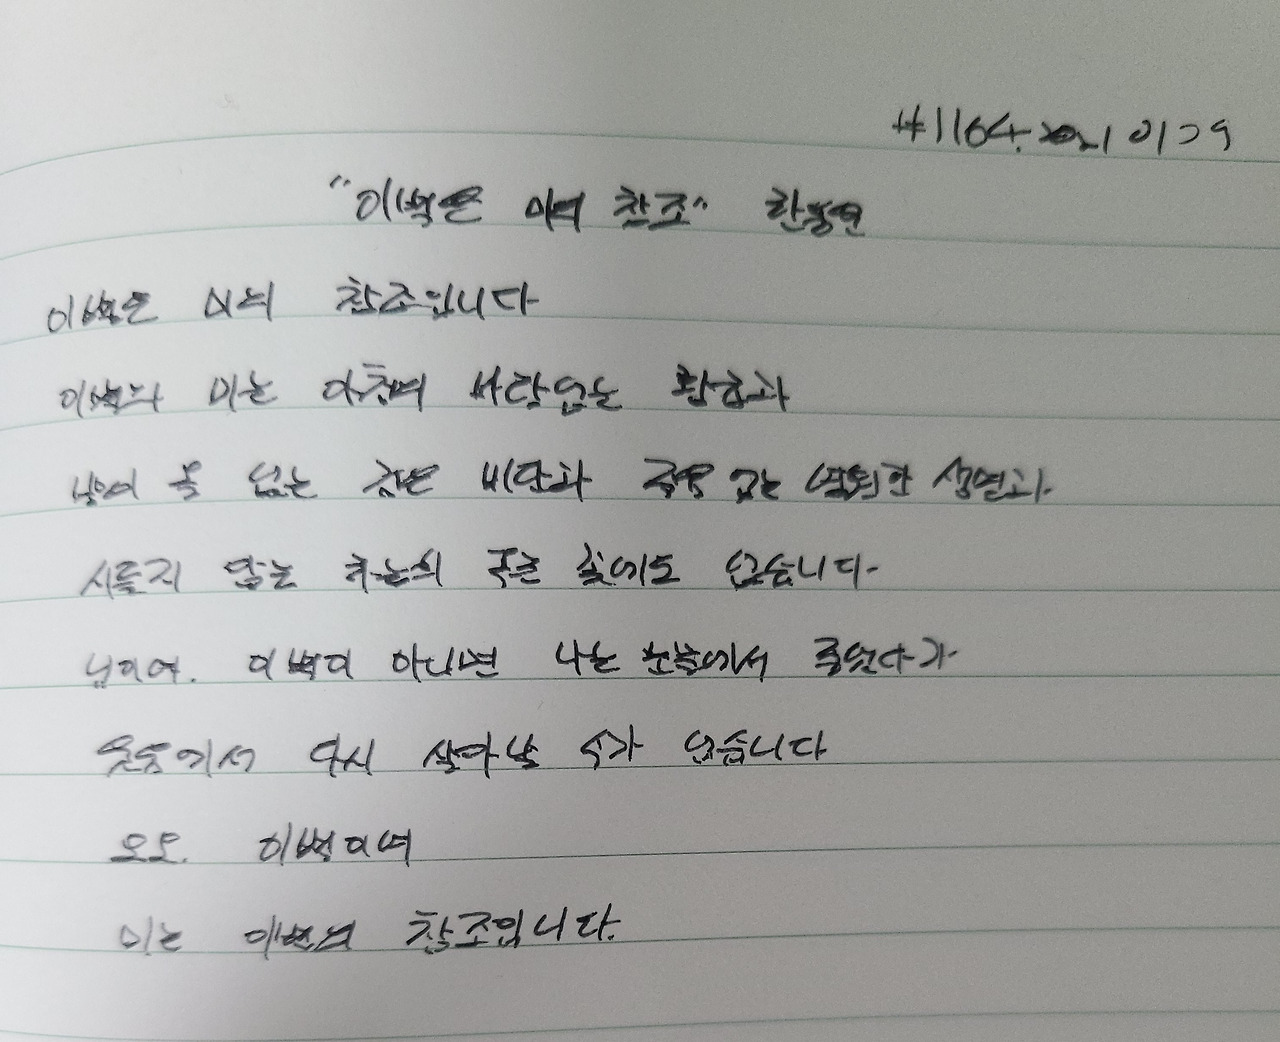 #1164. 2021 0129
"이별은 미의 창조" 한용운
이별은 미의 창조입니다
이별의 미는 아침의 바탕없는 황금과
밤의 올 없는 검은 비단과 죽음 없는 영원한 생명과
시들지 않는 하늘의 푸른 꽃에도 없습니다
님이여. 이별이 아니면 나는 눈물에서 죽었다가
웃음에서 다시 살아날 수가 없습니다
오오. 이별이여
미는 이별의 창조입니다.